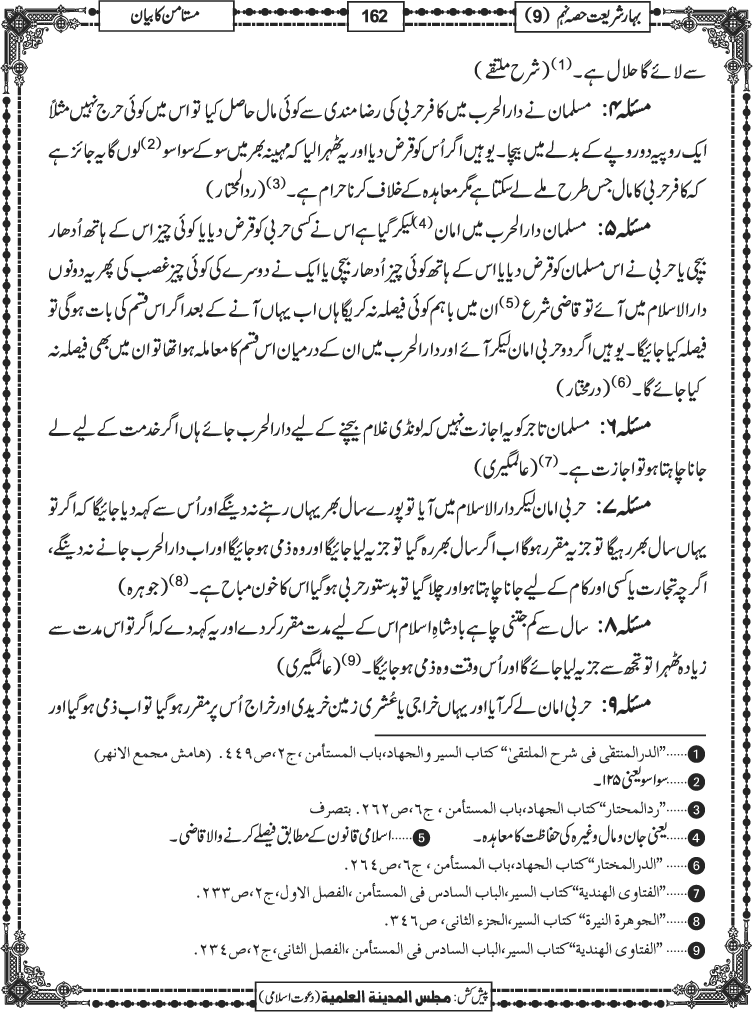 بہار شریعت حصہ نہم (9)
162
مستامن کا بیان
سے لائے گا حلال ہے۔(1) (شرح ملتقے)
مسئلہ ۴: مسلمان نے دارالحرب میں کافر حربی کی رضا مندی سے کوئی مال حاصل کیا تو اس میں کوئی حرج نہیں مثلاً
ایک روپیہ دو روپے کے بدلے میں بیچا۔ یوہیں اگر اُس کو قرض دیا اور یہ ٹھہرا لیا کہ مہینہ بھر میں سو کے سوا سو(2) لوں گا یہ جائز ہے
کہ کافر حربی کا مال جس طرح ملے لے سکتا ہے مگر معاہدہ کے خلاف کرنا حرام ہے۔(3) (ردالمحتار)
مسئلہ ۵: مسلمان دارالحرب میں امان(4) لیکر گیا ہے اس نے کسی حربی کو قرض دیا یا کوئی چیز اس کے ہاتھ اُدھار
بیچی یا حربی نے اس مسلمان کو قرض دیا یا اس کے ہاتھ کوئی چیز اُدھار بیچی یا ایک نے دوسرے کی کوئی چیز غصب کی پھر یہ دونوں
دارالاسلام میں آئے تو قاضی شرع(5) ان میں باہم کوئی فیصلہ نہ کریگا ہاں اب یہاں آنے کے بعد اگر اس قسم کی بات ہوگی تو
فیصلہ کیا جائیگا۔ یوہیں اگر دو حربی امان لیکر آئے اور دارالحرب میں ان کے درمیان اس قسم کا معاملہ ہوا تھا تو ان میں بھی فیصلہ نہ
کیا جائے گا۔(6) (درمختار)
مسئلہ ۶: مسلمان تاجر کو یہ اجازت نہیں کہ لونڈی غلام بیچنے کے لیے دارالحرب جائے ہاں اگر خدمت کے لیے لے
جانا چاہتا ہو تو اجازت ہے۔(7) (عالمگیری)
مسئلہ ۷: حربی امان لیکر دارالاسلام میں آیا تو پورے سال بھر یہاں رہنے نہ دینگے اور اُس سے کہہ دیا جائیگا کہ اگر تو
یہاں سال بھر رہیگا تو جزیہ مقرر ہوگا اب اگر سال بھر رہ گیا تو جزیہ لیا جائیگا اور وہ ذمی ہو جائیگا اور اب دارالحرب جانے نہ دینگے،
اگرچہ تجارت یا کسی اور کام کے لیے جانا چاہتا ہو اور چلا گیا تو بدستور حربی ہوگیا اس کا خون مباح ہے۔(8) (جوہرہ)
مسئلہ ۸: سال سے کم جتنی چاہے بادشاہِ اسلام اس کے لیے مدت مقرر کر دے اور یہ کہہ دے کہ اگر تو اس مدت سے
زیادہ ٹھہرا تو تجھ سے جزیہ لیا جائے گا اور اُس وقت وہ ذمی ہو جائیگا۔(9) (عالمگیری)
مسئلہ ۹: حربی امان لے کر آیا اور یہاں خراجی یا عُشری زمین خریدی اور خراج اُس پر مقرر ہوگیا تو اب ذمی ہوگیا اور
1......"الدرالمنتقی فی شرح الملتقی" کتاب السیر والجهاد،باب المستأمن ،ج۲،ص۴۴۹. (هامش مجمع الانهر)
2......سوا سو یعنی ۱۲۵۔
3......"ردالمحتار"کتاب الجهاد،باب المستأمن ، ج۶،ص۲۶۲. بتصرف
4......یعنی جان و مال وغیرہ کی حفاظت کا معاہدہ۔ 5......اسلامی قانون کے مطابق فیصلے کرنے والا قاضی۔
6...... "الدرالمختار"کتاب الجهاد،باب المستأمن ، ج۶،ص۲۶۴.
7......"الفتاوی الهندیة"کتاب السیر،الباب السادس فی المستأمن ،الفصل الاول،ج۲،ص۲۳۳.
8......"الجوهرة النیرة" کتاب السیر،الجزء الثانی، ص۳۴۶.
9...... "الفتاوی الهندیة"کتاب السیر،الباب السادس فی المستأمن ،الفصل الثانی،ج۲،ص۲۳۴.
پیش کش: مجلس المدینة العلمیة (دعوت اسلامی)